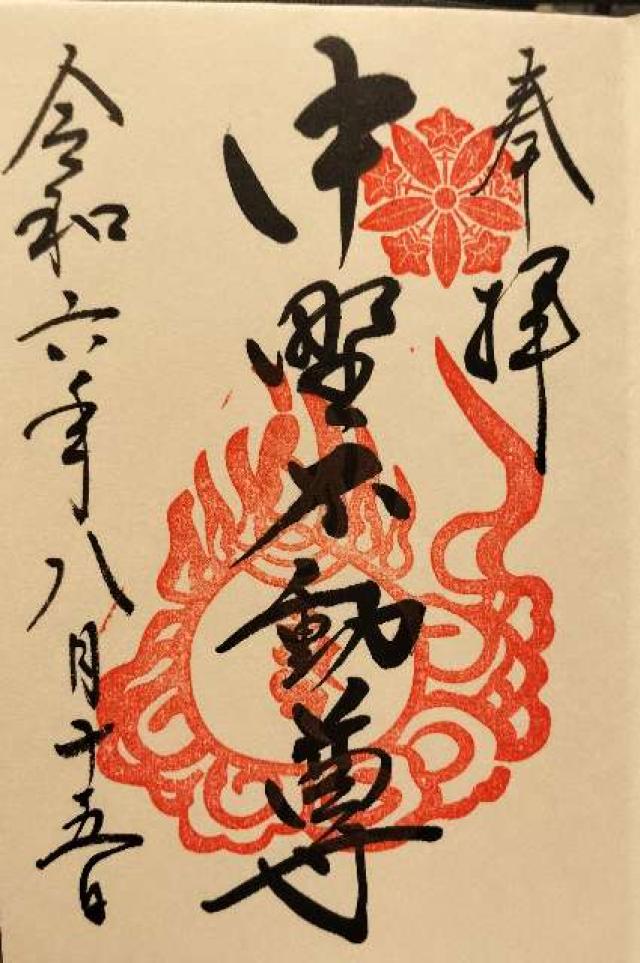 奉拝
中野不動尊
令和六年八月十五日